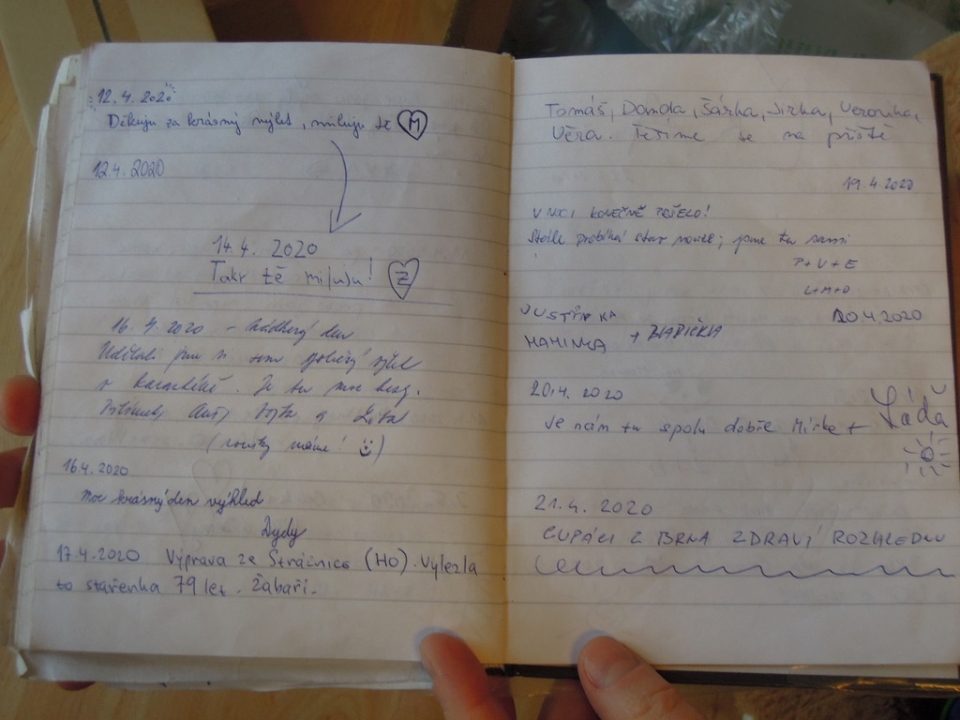 12.4.2020
Děkuju za krásný výlet, miluju tě M
12.4.2020
14.4. 2020
Taky tě miluju! Z
16.4.2020 - nádherný den
Udělali jsme si sem výlet
Je tu moc hezky.
Vojta a
(roušky máme! :))
16.4.2020
Moc krásný den výhled
Dydy
17.4.2020 Výprava ze Strážnice (HO). Vylezla
to stařenka 79 let. Žabaři.
Tomáš, Domča, Šárka, Jirka, Veronika,
Věra. Těšíme se na příště
19.4.2020
V NOCI KONEČNĚ PRŠELO!
Stále probíhá stav nouze; jsme tu sami
P+V+E
L+M+O
20.4.2020
JUSTÝNKA
MAMINKA + BABIČKA
20.4. 2020
Je nám tu spolu dobře Mirka + Láďa
21.4. 2020
CUPÁCI Z BRNA ZDRAVÍ ROZHLEDNU